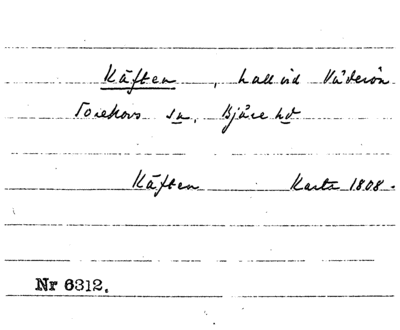 Käften, hall vid Väderön
Torekovs sn, Bjäre hd
Käften Karta 1808.
Nr 6312.